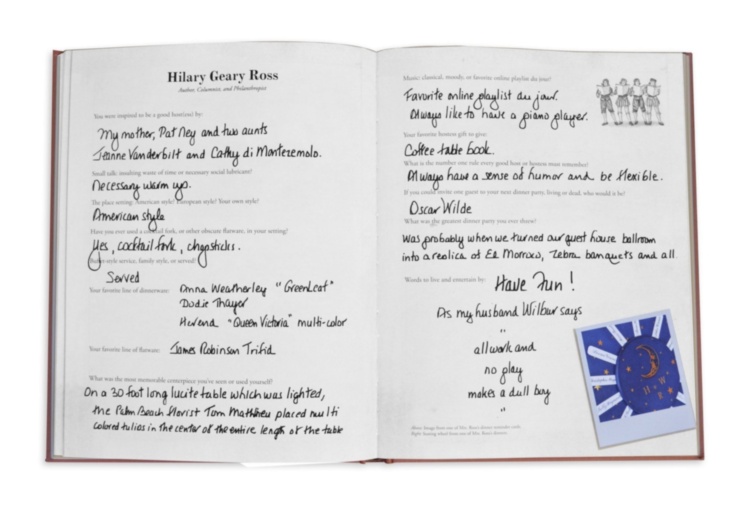 Hilary Geary Ross
Author, Columnist, and Philanthropist
You were inspired to be a good host(ess) by:
My mother, Pat Ney and two aunts
Jeanne Vanderbilt and Cathy di Montezemolo.
Small talk: insulting waste of time or necessary social lubricant?
Necessary warm up.
The place setting: American style? European style? Your own style?
American style
Have you ever used a cocktail fork, or other obscure flatware, in your setting?
Yes, cocktail fork, chopsticks.
Buffet-style service, family style, or served?
Served
Your favorite line of dinnerware: Anna Weatherley "GreenLeaf"
Dodie Thayer
Herend "Queen Victoria" multi-color
Your favorite line of flatware: James Robinson Trifid
What was the most memorable centerpiece you've seen or used yourself?
On a 30 foot long lucite table which was lighted,
the Palm Beach florist Tom Mathieu placed multi
colored tulips in the center of the entire length of the table
Music: classical, moody, or favorite online playlist du jour?
Favorite online playlist du jour.
Always like to have a piano player.
Your favorite hostess gift to give:
Coffee table book.
What is the number one rule every good host or hostess must remember?
Always have a sense of humor and be flexible.
If you could invite one guest to your next dinner party, living or dead, who would it be?
Oscar Wilde
What was the greatest dinner party you ever threw?
Was probably when we turned our guest house ballroom
into a replica of El Morroco, zebra banquets and all
Words to live and entertain by: Have Fun!
As my husband Wilbur says
"
all work and
no play
makes a dull boy
"
H W
R